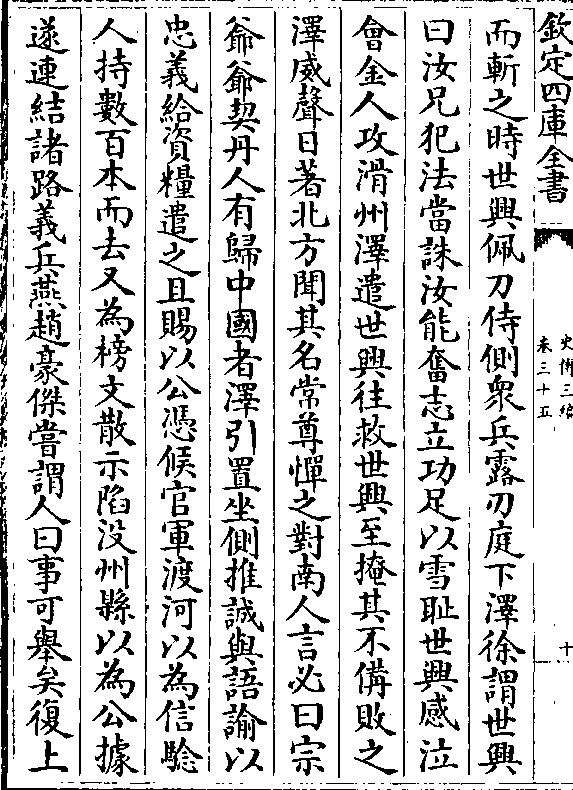 欽定四庫全書
史傳三編
卷三十五
十
而斬之時世興佩刀侍側衆兵露刃庭下澤徐謂世興
曰汝兄犯法當誅汝能奮志立功足以雪耻世興感泣
會金人攻滑州澤遣世興往救世興至掩其不備敗之
澤威聲日著北方聞其名常尊憚之對南人言必曰宗
爺爺契丹人有歸中國者澤引置坐側推誠與語諭以
忠義給資糧遣之且賜以公憑候官軍渡河以為信驗
人持數百本而去又為榜文散示陷没州縣以為公據
遂連結諸路義兵燕趙豪傑嘗謂人曰事可舉矣復上